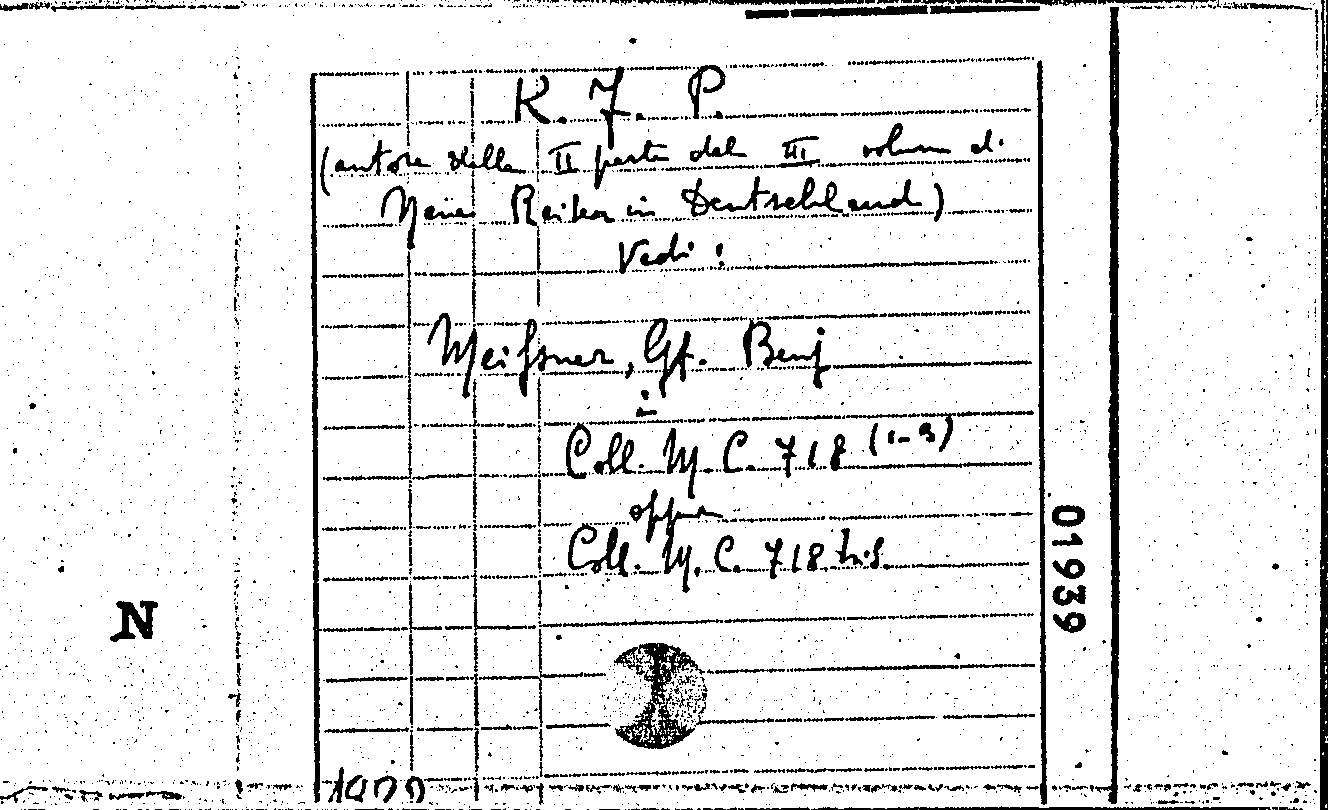 K. J. P.
(autore della II parte del III volume di
Meine Reisen in Deutschland)
Vedi:
Meißner, Gf. Benj
in
Coll. M. C. 718 (1-3)
oppure
Coll. M. C. 718 bis.
01939
N